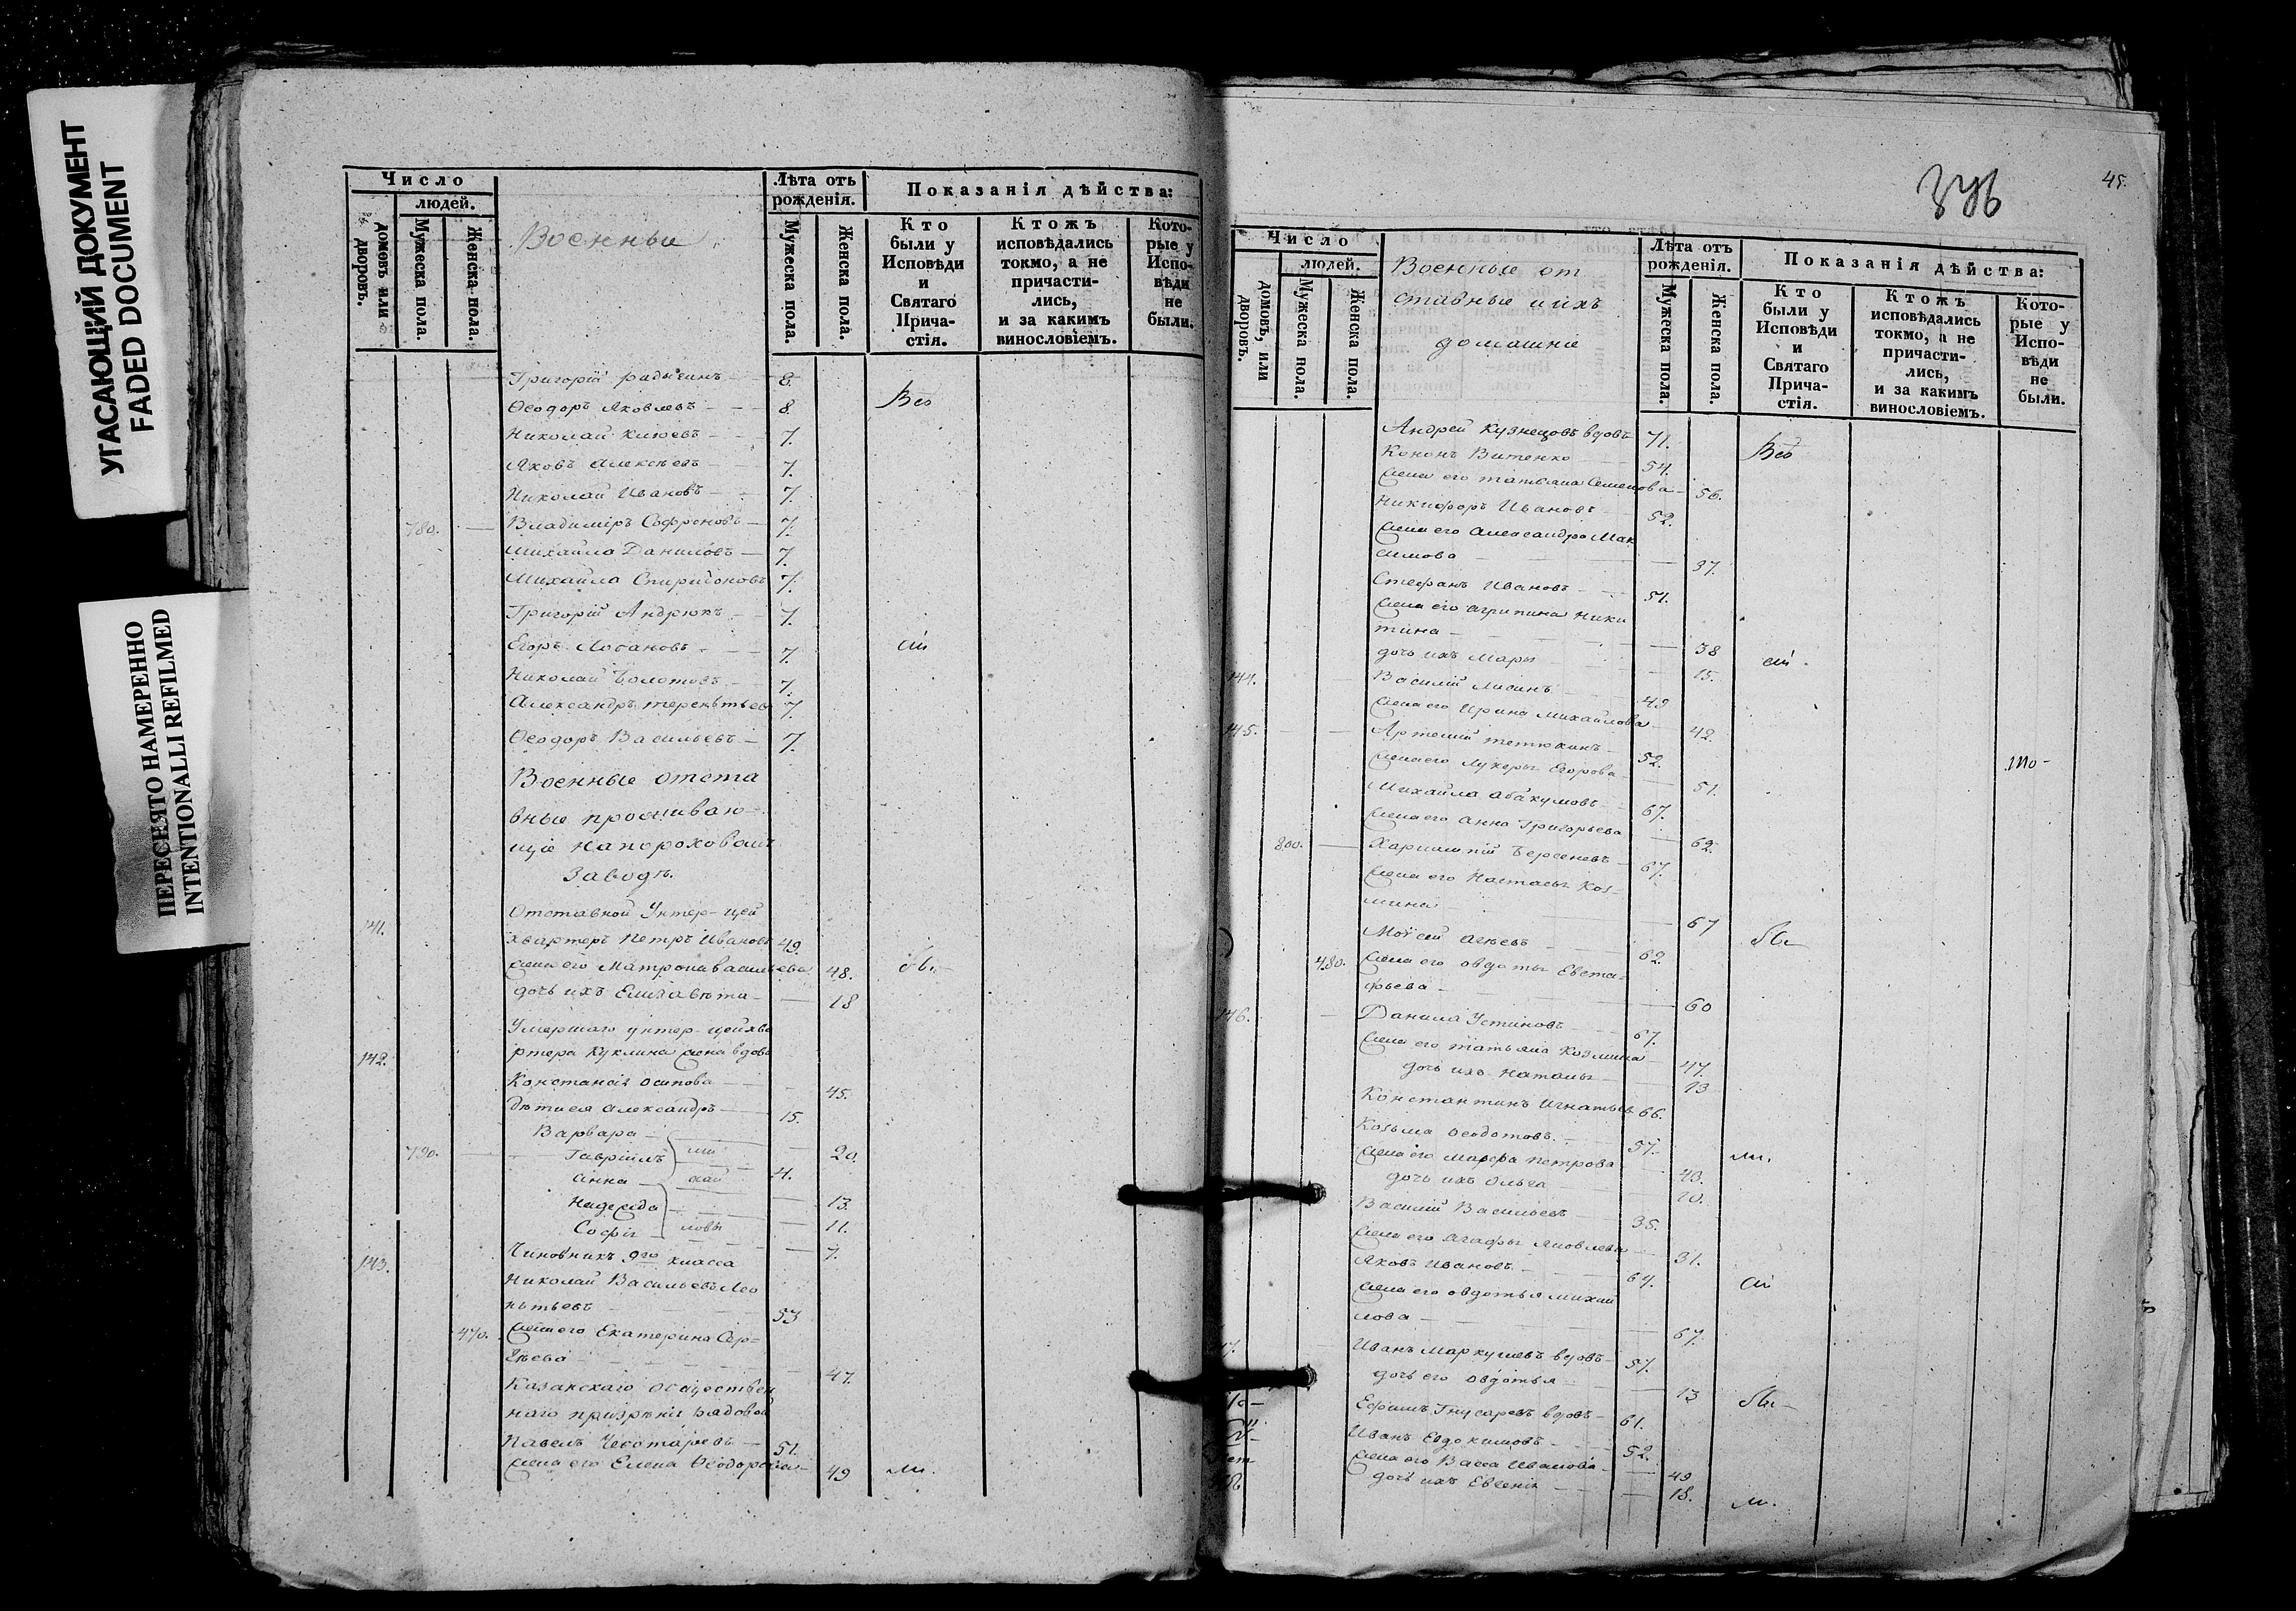 УГАСАЮЩИЙ ДОКУМЕНТ
FADED DOCUMENT
ПЕРЕСНЯТО НАМЕРЕННО
INTENTIONALLI REFILMED
Число
людей.
домовъ или дворовъ.
Мужеска пола.
Женска пола.
Военные
Лѣта отъ рожденія.
Мужеска пола.
Женска пола.
Показанія дѣйства:
Кто были у Исповѣди и Святаго Прича-стія.
Ктожъ исповѣдались токмо, а не причасти-лись, и за какимъ винословіемъ.
Кото-рые у Испо-вѣди не были.
Григорій 8.
Ѳеодоръ Яковлевъ 8. Всѣ
Николай Клюевъ 7.
Яковъ Алексѣевъ 7.
Николай Ивановъ 7.
780. Владиміръ Софроновъ 7.
Михайла Даниловъ 7.
Михайла Спиридоновъ 7.
Григорій Андрюкъ 7.
Егоръ Лобановъ 7.
Николай Болотовъ 7.
Александръ Терентьевъ 7.
Ѳеодоръ Васильевъ 7.
Военные отста
вные проживаю-
щіе на пороховомъ
Заводѣ.
Отставной Унтер-цей
141. хвартеръ Петръ Ивановъ 49.
жена его Матрона Васильева 48. бы-
дочь ихъ Елизавета 18
Умершаго унтер-цейхва
142. ртера Куклина жена вдова
Констансія Осипова 45.
дѣти ея Александръ 15.
Варвара 20.
790. Гавріилъ 4.
Анна 13.
Надежда 11.
Софія 7.
143. Чиновникъ 9го класса
Николай Васильевъ Лео
нтьевъ 53
470. жена его Екатерина Сер-
гѣева 47.
Казанскаго обществен
наго призрѣнія рядовой
Павелъ Чеботаревъ 51.
жена его Елена Ѳеодорова 49 ли.
45.
Число
людей.
домовъ, или дворовъ.
Мужеска пола.
Женска пола.
Военные от
ставные и ихъ
домашніе
Лѣта отъ рожденія.
Мужеска пола.
Женска пола.
Показанія дѣйства:
Кто были у Исповѣди и Святаго Прича-стія.
Ктожъ исповѣдались токмо, а не причасти-лись, и за какимъ винословіемъ.
Кото-рые у Испо-вѣди не были.
Андрей Кузнецовъ вдовъ 71. Всѣ
Кононъ Витенко 54.
жена его Татьяна Семенова 56.
Никифоръ Ивановъ 52.
жена его Александра Мак
симова 37.
Стефанъ Ивановъ 51.
жена его Агрипина Ники
тина 38
дочь ихъ Марья 15.
144. Василій Лисинъ 49
жена его Ирина Михайлова 42.
145. Артемій Тетюхинъ 52.
жена его Лукерья Егорова 51.
Михайла Абакумовъ 67.
жена его Анна Григорьева 62.
800. Харлампій Берсеневъ 67.
жена его Настасья Коз-
мина 67
Моѵсей Агѣевъ 62. бы-
480. жена его Овдотья Евста-
фьева 60
146. Данила Устиновъ 67.
жена его Татьяна Козмина 47.
дочь ихъ Наталья 13
Константинъ Игнатьевъ 66.
Козьма Ѳеодотовъ 57.
жена его Марѳа Петрова 43. ли.
дочь ихъ Ольга 10.
Василій Васильевъ 35.
жена его Агафья Яковлева 31.
Яковъ Ивановъ 67.
жена его Овдотья Михай
лова 67.
Иванъ Маркушевъ вдовъ 57.
дочь его Овдотья 13 бы-
Ефимъ Гнусаревъ вдовъ 61.
Иванъ Евдокимовъ 52.
жена его Васса Иванова 49
дочь ихъ Евгенія 18. ли.